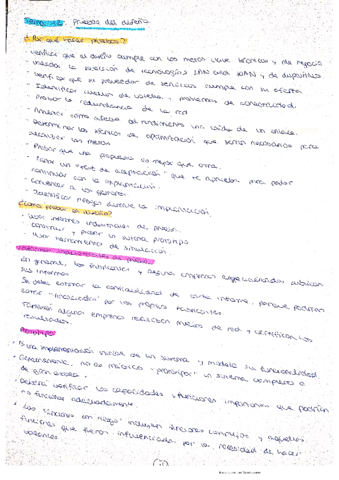 pruebas del diseño
¿Por qué hacer pruebas?
- Verificar que el diseño cumple con los metas clave técnicas y de negocio
- Validar la selección de tecnologías LAN and WAN, y de dispositivos
- Verificar que el proveedor de servicios cumple con su oferta
- Identificar cuellos de botella, problemas de conectividad
- Probar la redundancia de la red
- Analizar cómo afecta al rendimiento una caída de un enlace.
- Determinar las técnicas de optimización que serán necesarias para
alcanzar los metas
- Probar que una propuesta es mejor que otra.
- Pasar un "test de aceptación" que te aprueben para poder
continuar con la implementación.
- Convencer a los
- Identificar riesgos durante la implementación.
¿Cómo probar el diseño?
- Usar informes industriales de pruebas
- Construir y probar un sistema prototipo
- Usar herramientas de simulación
En general, los fabricantes y algunas empresas especializadas publican
sus informes
Se debe estimar la confiabilidad de estos informes, porque podrían
estar por los propios fabricantes.
También algunas empresas realizan de red y certifican los
resultados.
Prototipo
- Es una implementación inicial de un sistema y modela su funcionalidad.
- Generalmente, no es práctico "prototipar" un sistema completo a
gran escala.
- Deberá verificar las capacidades y funciones importantes que podrían
no funcionar adecuadamente.
- Las "funciones en riesgo" incluyen funciones complejas y aquellas
funciones que fueron influenciadas por la necesidad de hacer